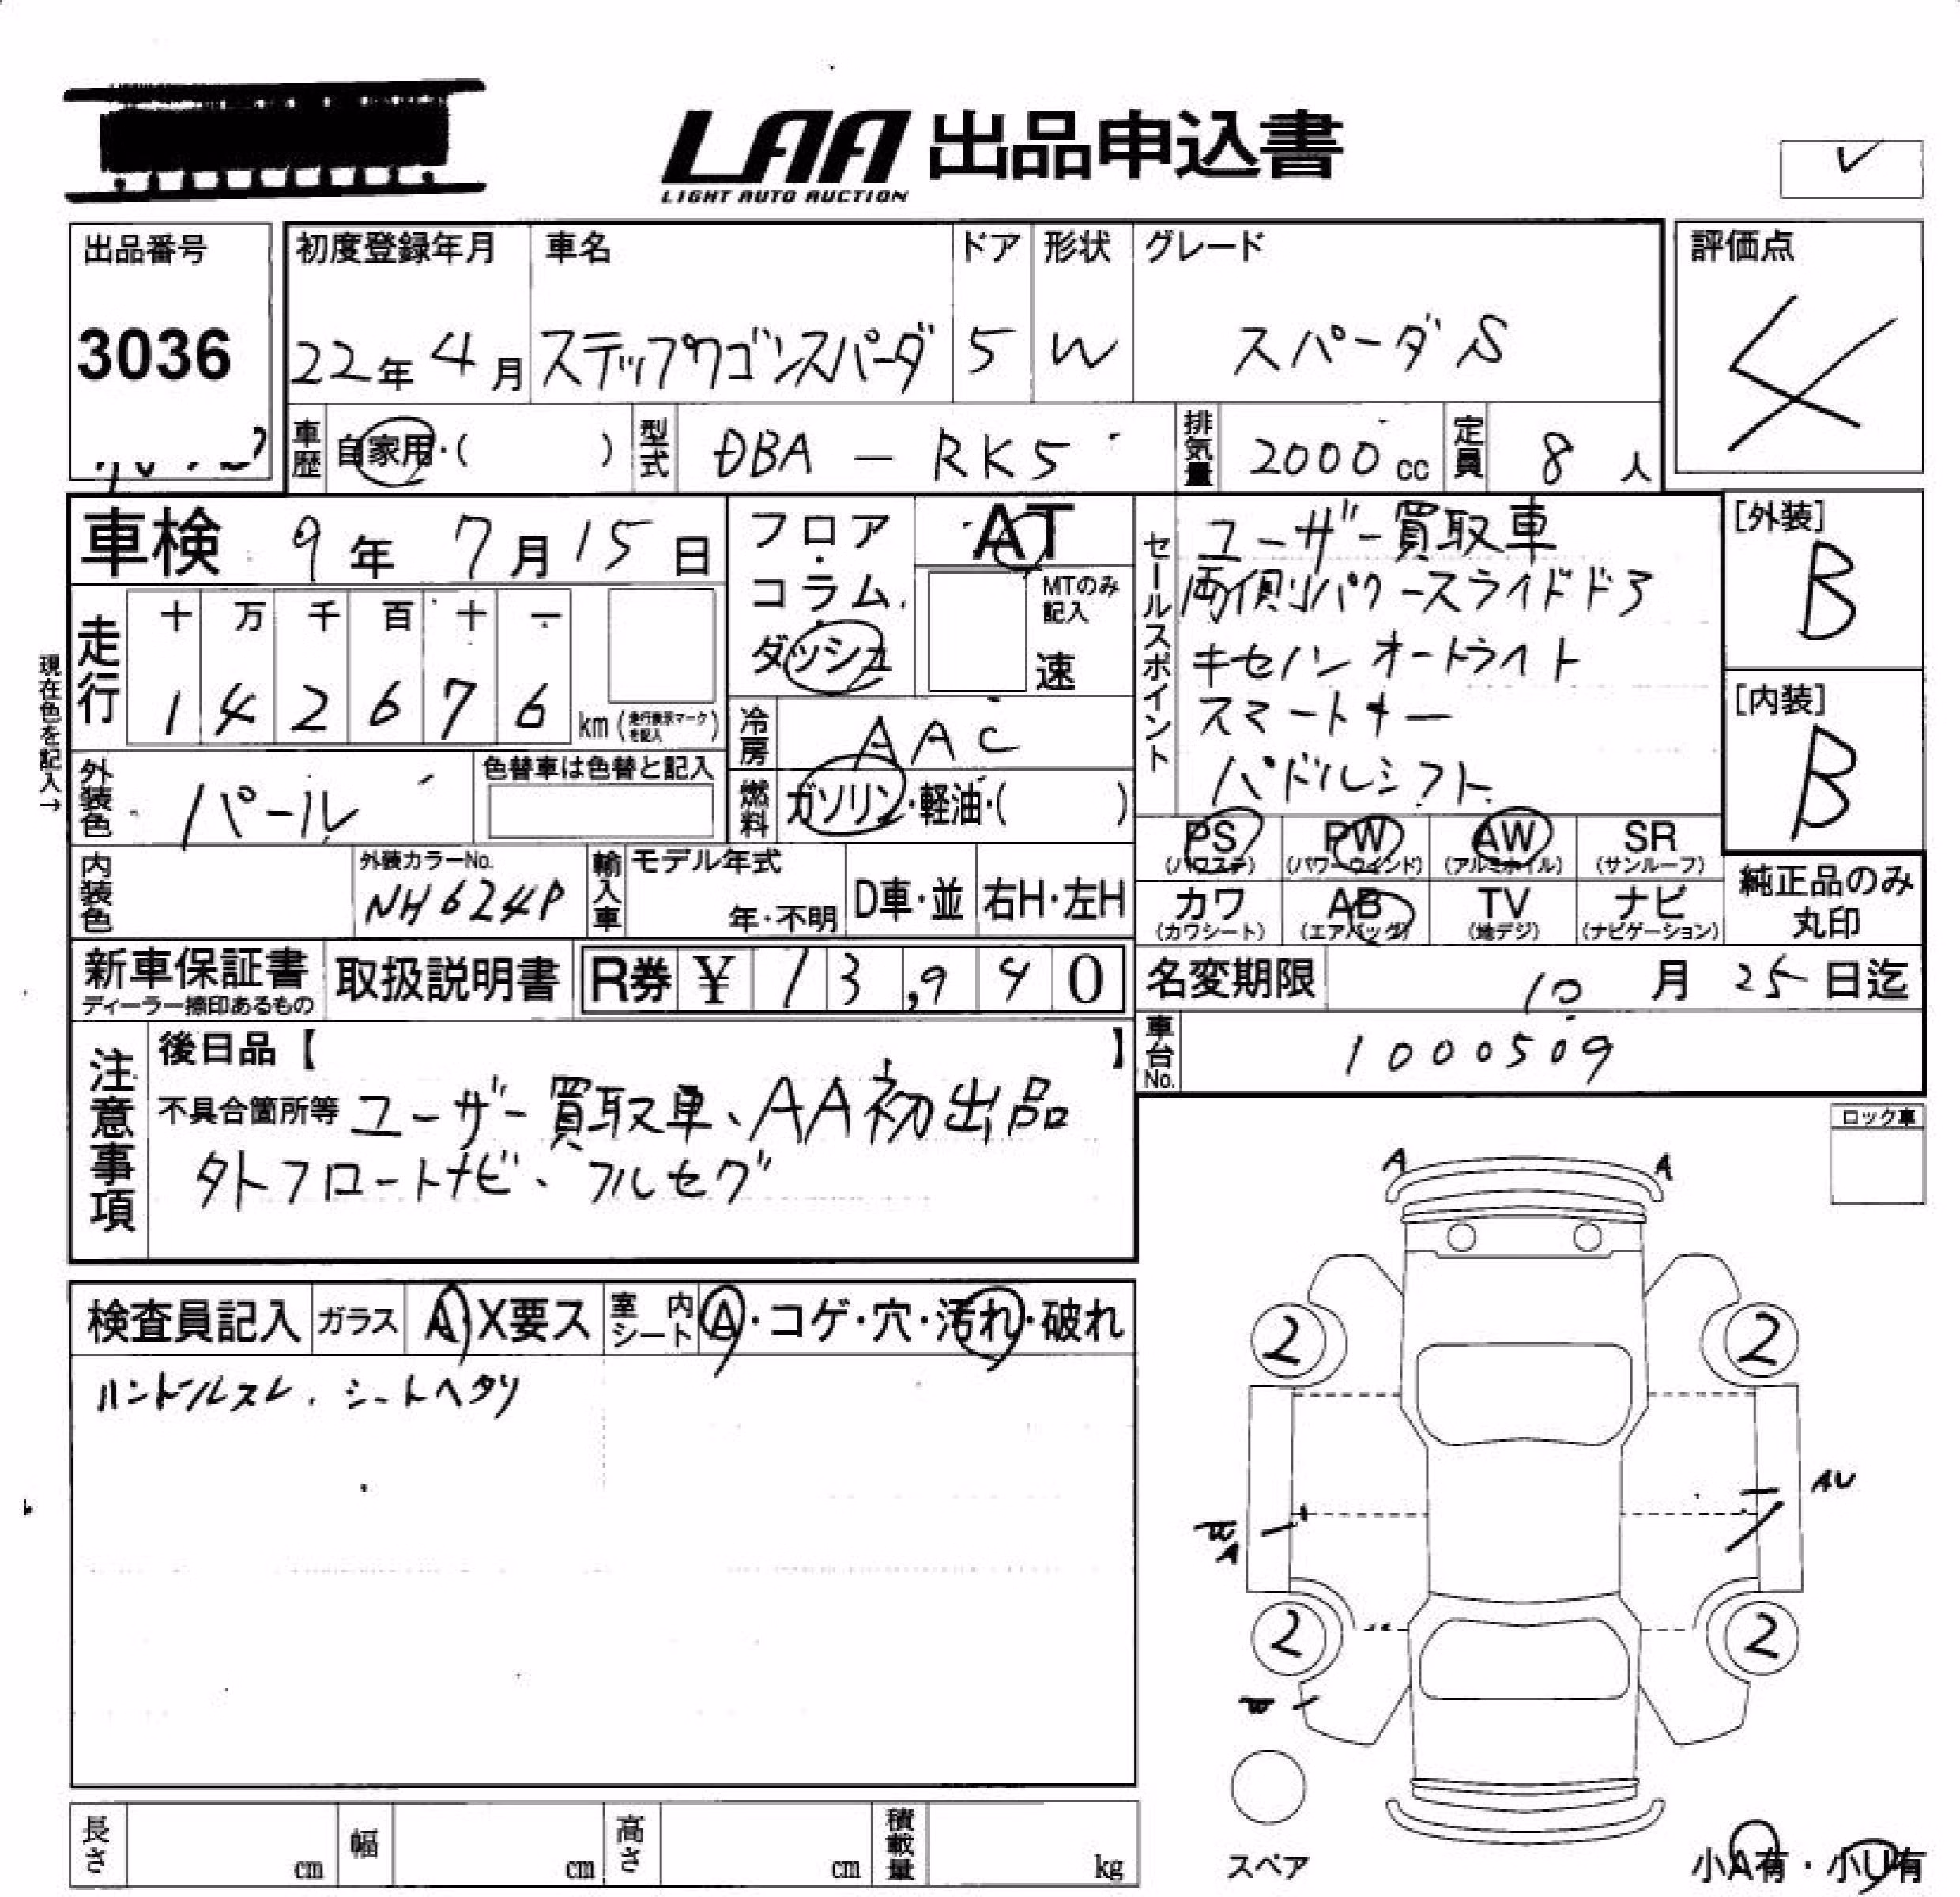 LAA 出品申込書
LIGHT AUTO AUCTION
出品番号
3036
初度登録年月
22年 4月
車名
ステップワゴンスパーダ
ドア
5
形状
W
グレード
スパーダ S
評価点
4
車歴 自家用・( )
型式 DBA - RK5
排気量 2000 cc
定員 8 人
車検 9年 7月 15日
フロア・コラム・ダッシュ
AT
MTのみ記入
速
セールスポイント
ユーザー買取車
両側パワースライドドア
キセノン オートライト
スマートキー
パドルシフト
[外装]
B
[内装]
B
現在色を記入→
走行
十 万 千 百 十 一
1 4 2 6 7 6 km (走行表示マークを記入)
冷房 AAC
外装色 パール
色替車は色替と記入
燃料 ガソリン・軽油・( )
PS (パワステ)
PW (パワーウィンド)
AW (アルミホイル)
SR (サンルーフ)
カワ (カワシート)
AB (エアバッグ)
TV (地デジ)
ナビ (ナビゲーション)
純正品のみ丸印
内装色
外装カラーNo.
NH624P
輸入車
モデル年式
年・不明
D車・並
右H・左H
新車保証書
ディーラー捺印あるもの
取扱説明書
R券 ¥ 13,940
名変期限 10月 25日迄
車台No. 1000509
注意事項
後日品【 】
不具合箇所等 ユーザー買取車、AA初出品
外フロートナビ、フルセグ
ロック車
検査員記入
ガラス A・X要ス
室内シート A・コゲ・穴・汚れ・破れ
ハンドルスレ、シートヘタリ
A A
2 2
AU
W
A
2 2
W
スペア
小A有・小U有
長さ cm
幅 cm
高さ cm
積載量 kg